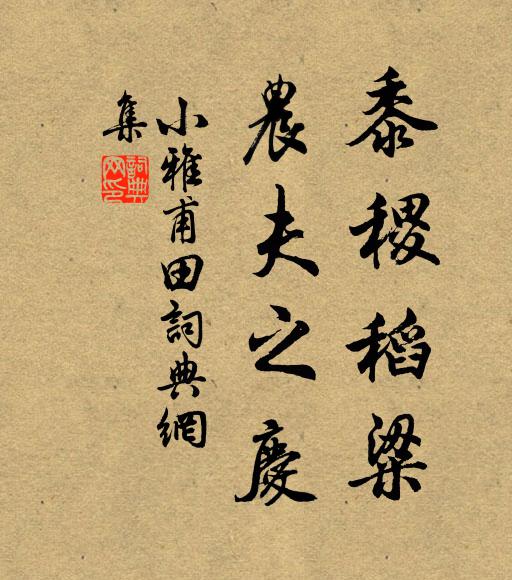 黍稷稻粱
農夫之慶
小雅甫田詞典網
集
詞典网印